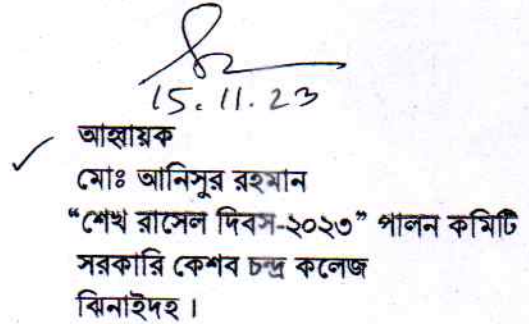 15.11.23
আহ্বায়ক
মোঃ আনিসুর রহমান
“শেখ রাসেল দিবস-২০২৩” পালন কমিটি
সরকারি কেশব চন্দ্র কলেজ
ঝিনাইদহ।